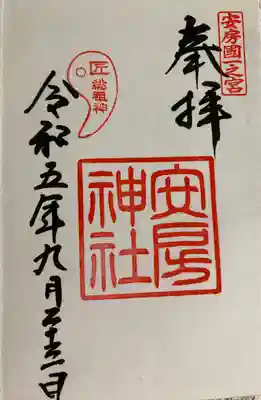 安房國一之宮
奉拝
安房神社
匠 總祖神
令和五年九月二十三日